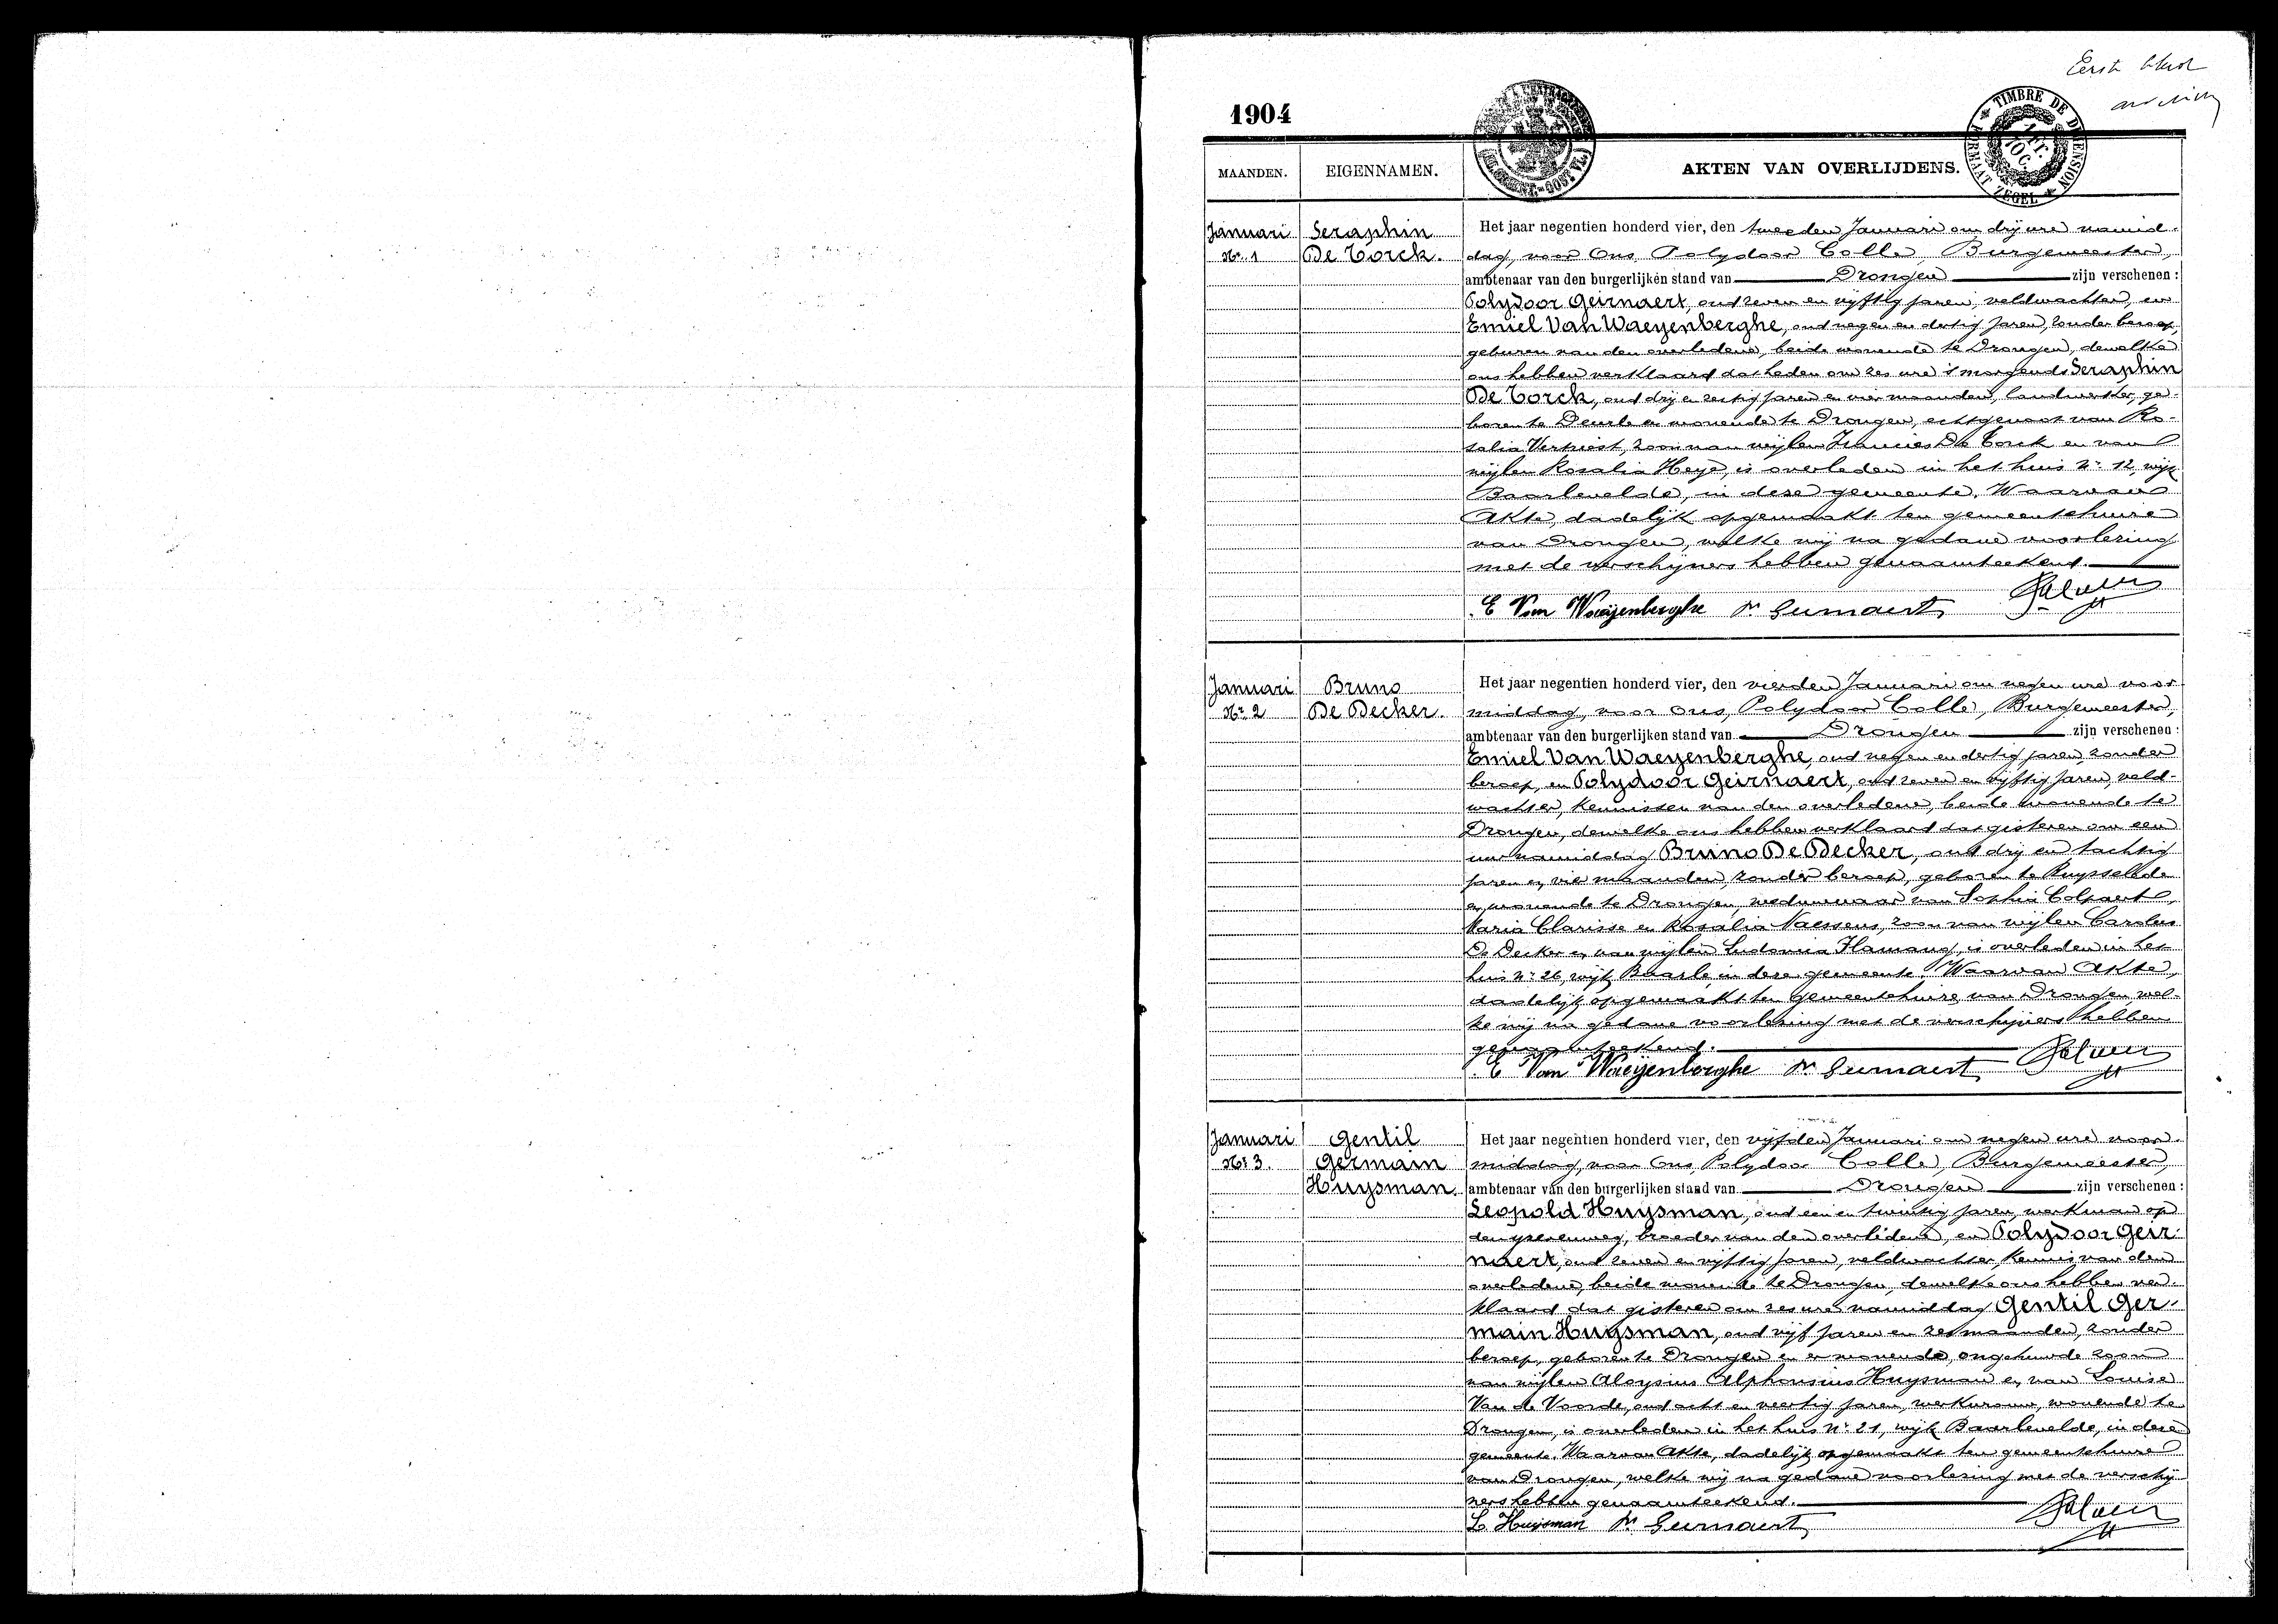 Eerste blad
1904
TIMBRE DE DIMENSION
FORMAAT ZEGEL
1 Fr. 10 C.
MAANDEN. EIGENNAMEN. AKTEN VAN OVERLIJDENS.
Januari Seraphin Het jaar negentien honderd vier, den tweeden Januari om drij ure namid-
Nr. 1 De Torck. dag, voor Ons, Polydoor Colle, Burgemeester,
ambtenaar van den burgerlijken stand van Drongen zijn verschenen:
Polydoor Geirnaert, oud zeven en vijftig jaren, veldwachter, en
Emiel Van Waeyenberghe, oud negen en dertig jaren, zonder beroep,
geburen van den overledene, beide wonende te Drongen, dewelke
ons hebben verklaard dat heden om zes ure 's morgends Seraphin
De Torck, oud drij en zestig jaren en vier maanden, landwerker, ge-
boren te Deurle en wonende te Drongen, echtgenoot van Ro-
salia Vertriest, zoon van wijlen Francies De Torck en van
wijlen Rosalia Heye, is overleden in het huis Nr. 12, wijk
Baarlevelde, in deze gemeente. Waarvan
Akte, dadelijk opgemaakt ten gemeentehuize
van Drongen, welke wij na gedane voorlezing
met de verschijners hebben genaamteekend.
E Van Waeyenberghe Pr Geirnaert
Januari Bruno Het jaar negentien honderd vier, den vierden Januari om negen ure voor-
Nr. 2 De Decker. middag, voor Ons, Polydoor Colle, Burgemeester,
ambtenaar van den burgerlijken stand van Drongen zijn verschenen:
Emiel Van Waeyenberghe, oud negen en dertig jaren, zonder
beroep, en Polydoor Geirnaert, oud zeven en vijftig jaren, veld-
wachter, kennissen van den overledene, beide wonende te
Drongen, dewelke ons hebben verklaard dat gisteren om een
ure namiddag Bruno De Decker, oud drij en tachtig
jaren en vier maanden, zonder beroep, geboren te Ruysselede
en wonende te Drongen, weduwnaar van Sophia Colpaert,
Maria Clarisse en Rosalia Naessens, zoon van wijlen Carolus
De Decker en van wijlen Ludovica Flamang, is overleden in het
huis Nr. 26, wijk Baarle, in deze gemeente. Waarvan Akte,
dadelijk opgemaakt ten gemeentehuize van Drongen, wel-
ke wij na gedane voorlezing met de verschijners hebben
genaamteekend.
E Van Waeyenberghe Pr Geirnaert
Januari Gentil Het jaar negentien honderd vier, den vijfden Januari om negen ure voor-
Nr. 3. Germain middag, voor Ons, Polydoor Colle, Burgemeester,
Huysman. ambtenaar van den burgerlijken stand van Drongen zijn verschenen:
Leopold Huysman, oud een en twintig jaren, werkman op
den yzerenweg, broeder van den overledene, en Polydoor Geir-
naert, oud zeven en vijftig jaren, veldwachter, kennis van den
overledene, beide wonende te Drongen, dewelke ons hebben ver-
klaard dat gisteren om zes ure namiddag Gentil Ger-
main Huysman, oud vijf jaren en zes maanden, zonder
beroep, geboren te Drongen en er wonende, ongehuwde zoon
van wijlen Aloysius Alphonsius Huysman en van Louise
Van de Voorde, oud acht en veertig jaren, werkvrouw, wonende te
Drongen, is overleden in het huis Nr. 21, wijk Baarlevelde, in deze
gemeente. Waarvan Akte, dadelijk opgemaakt ten gemeentehuize
van Drongen, welke wij na gedane voorlezing met de verschij-
ners hebben genaamteekend.
L Huysman Pr Geirnaert